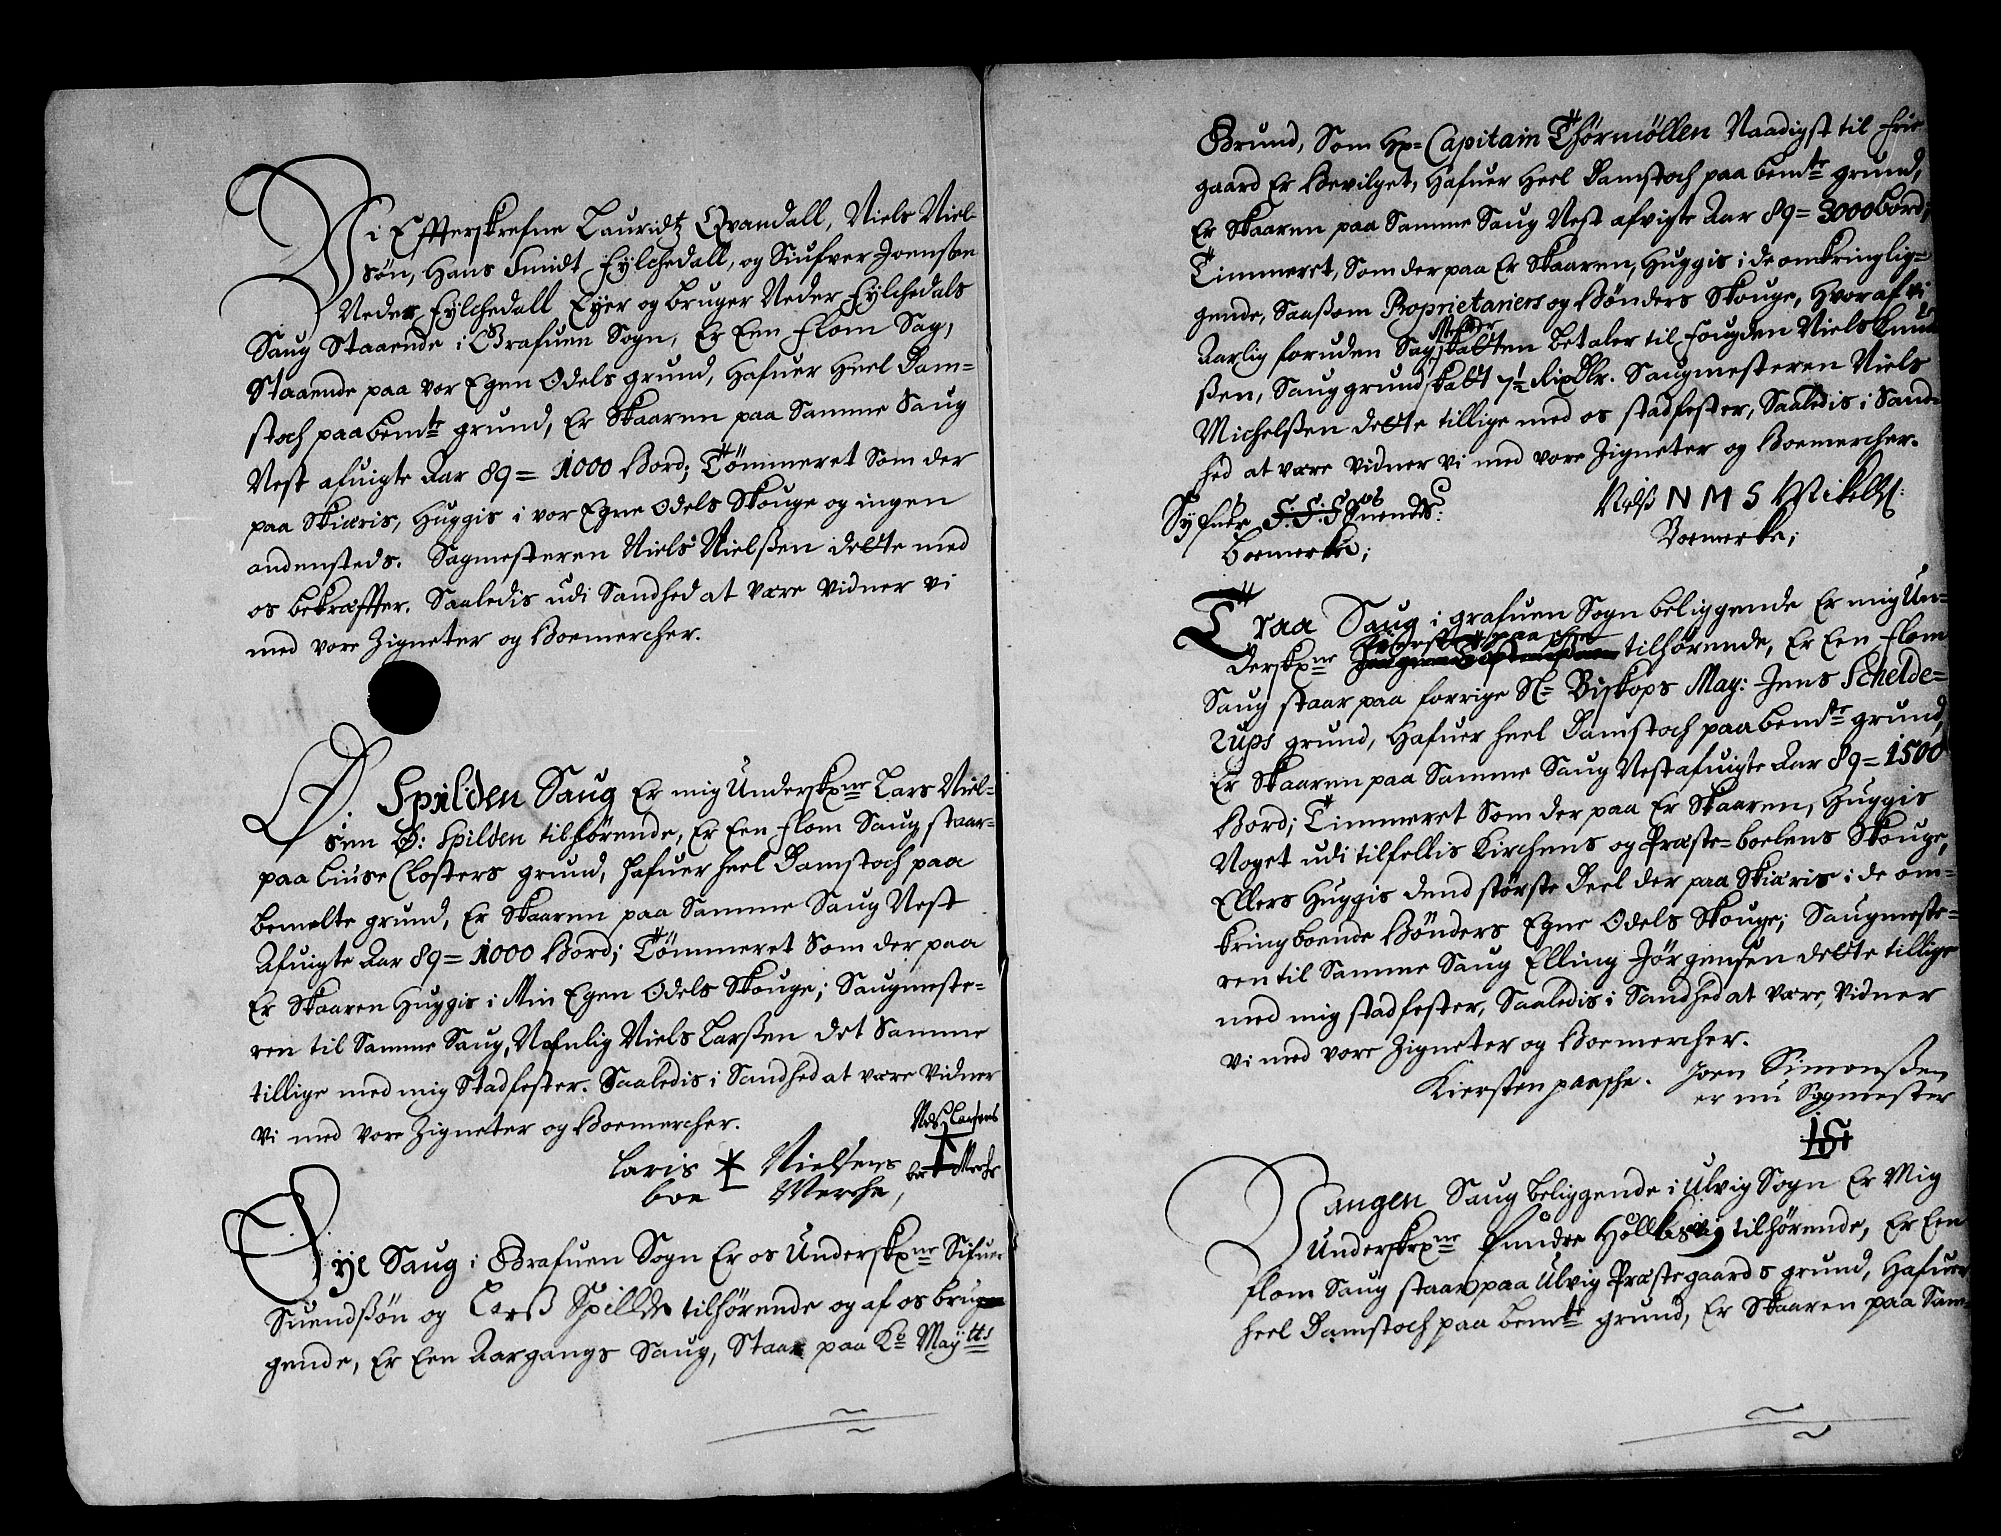 Vi Effterskrefne Lauridtz Qvandall, Niels Niel-
søn, Hans Smidt Eylchedall, og Siufver Joensøn
Neder Eylchedall Eyer og bruger Neder Eylchedals
Saug Staaende i Grafuen Sogn, Er Een flom Sag,
Staaende paa vor Egen Odels grund, hafuer Heel Dam-
stoch paa bemte grund, Er Skaaren paa Samme Saug
Nest afuigte Aar 89 = 1000 Bord; Tømmeret Som der
paa Skiæris, Huggis i vor Egne Odels Skouge og ingen
andensteds. Sagmesteren Niels Nielsßen dette med
os bekræffter. Saaledis udi Sandhed at være vidner vi
med vore Zigneter og Boemercher.
Ø. Spilden Saug Er mig Underskrne Lars Niel-
sen Ø: Spilden tilhørende, Er Een flom Saug staar-
paa Liuse Closters grund, hafuer heel Damstoch paa
bemelte grund, Er Skaaren paa Samme Saug Nest
Afuigte Aar 89 = 1000 Bord; Tømmeret Som der paa
Er Skaaren Huggis i Min Egen Odels Skouge; Saugmeste-
ren til Samme Saug, Nafnlig Niels Larsßen det Samme
tillige med mig Stadfester. Saaledis i Sandhed at være vidner
vi med vore Zigneter og Boemercher.
Nels Larsens
Laris Nielsens boe Merche
boe Merche,
Øye Saug i Grafuen Sogn Er os Underskrne Sifuer
Suendsßøn og Larß Spillde tilhørende og af os brug
gende, Er Een Aargangs Saug, Staar paa Ko Maÿtts
Grund, Som Hr= Capitain Thørmøllen Naadigst til frie
gaard Er Bevilget, Hafuer Heel Damstoch paa bemte grund,
Er Skaaren paa Samme Saug Nest afvigte Aar 89 = 3000 bord;
Timmeret, Som der paa Er Skaaren, Huggis i de omkringlig=
gende, Saasßom Proprietariers og Bønders Skouge, Hvoraf vi
Aarlig foruden Sagskatten betaler til fougden Niels Knud
sßen, Saug grundskatt 7½ RixDlr. Saugmesteren Niels
Michelsßen dette tillige med os stadfester, Saaledis i Sand-
hed at være vidner vi med vore Zigneter og Boemercher.
Syfuer S.S.S Suends: Nielß N M S Mikellß:
boemerke; Boemerke;
Traa Saug i grafuen Sogn beliggende Er mig Un-
derskrne tilhørende, Er Een flom
Saug staar paa forrige Sl= Biskops Mag: Jens Schelde=
rups grund, Hafuer heel Damstoch paa bemte grund,
Er Skaaren paa Samme Saug Nest afuigte Aar 89 = 1500
Bord; Timmeret Som der paa Er Skaaren, Huggis
Noget udi tilfellis Kirchens og Præste=boelens Skouge,
Ellers Huggis dend største Deel der paa Skiæris i de om-
kring boende Bønders Egne Odels Skouge; Saugmeste=
ren til Samme Saug Elling Jørgensen dette tillige
med mig stadfester, Saaledis i Sandhed at være, vidner
vi med vore Zigneter og Boemercher.
Kiersten paasche. Joen Simonsßen
er nu Sagmester
Vangen Saug beliggende i Ulvig Sogn Er Mig
Underskrne tilhørende, Er Een
flom Saug staar paa Ulvig Præstegaards grund, Hafuer
heel Damstoch paa bemte grund, Er Skaaren paa Sam-